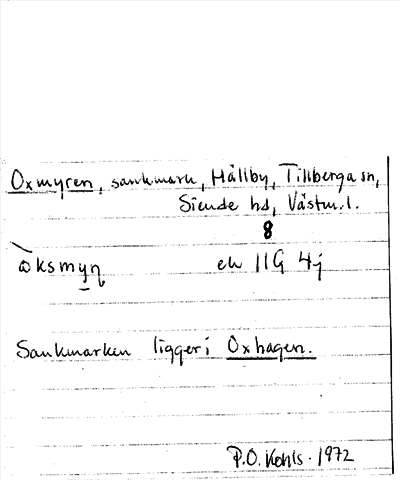 Oxmyren, sankmark, Hällby, Tillberga sn,
Siende hd, Västm.l.
8
ek 11G 4j
Sankmarken ligger i Oxhagen.
P.O. Kohls. 1972